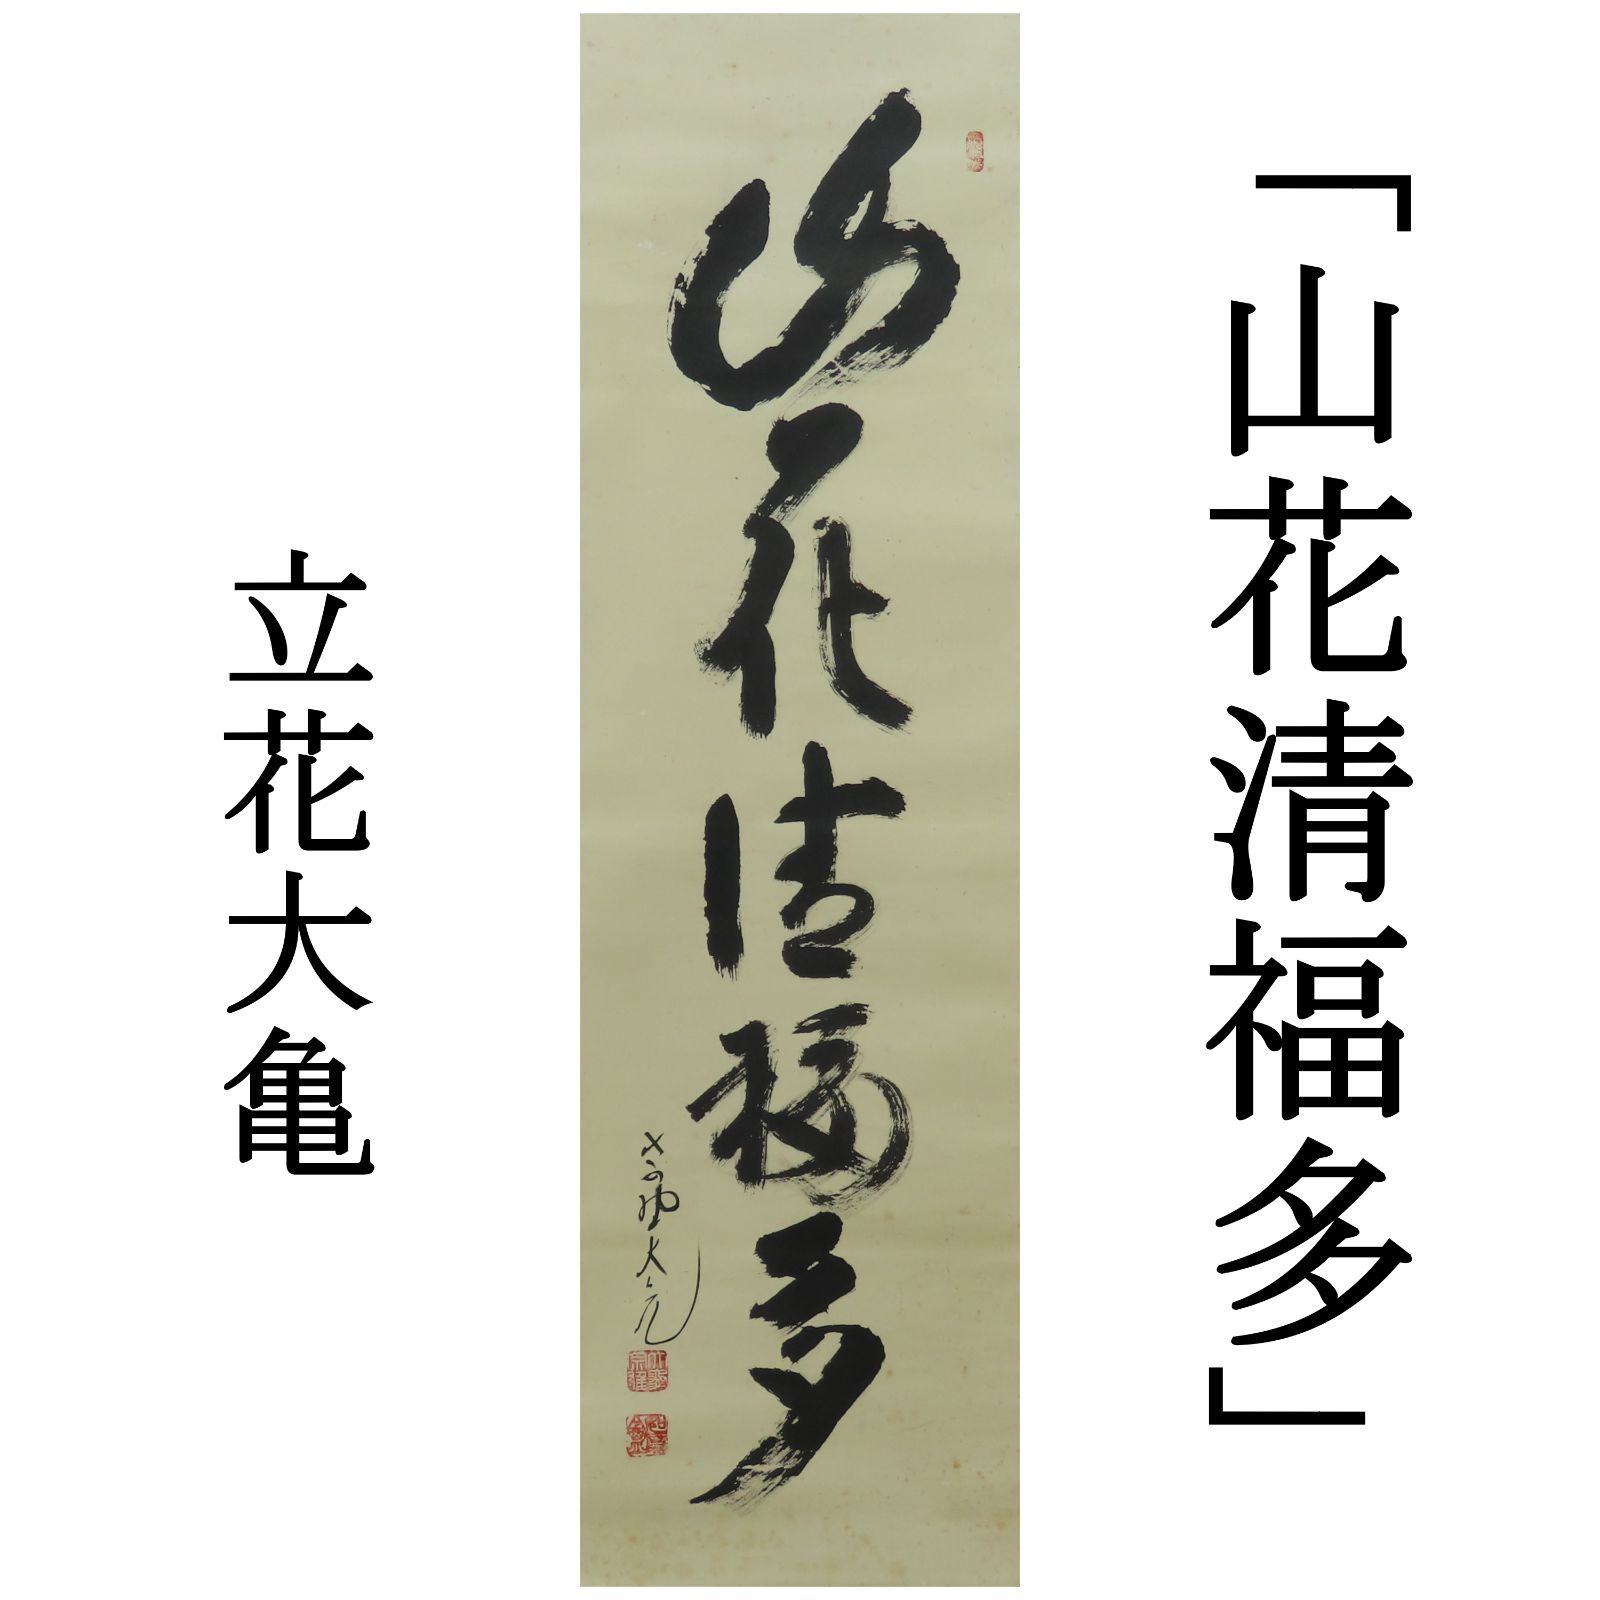 「山花清福多」
山花清福多
立花大亀